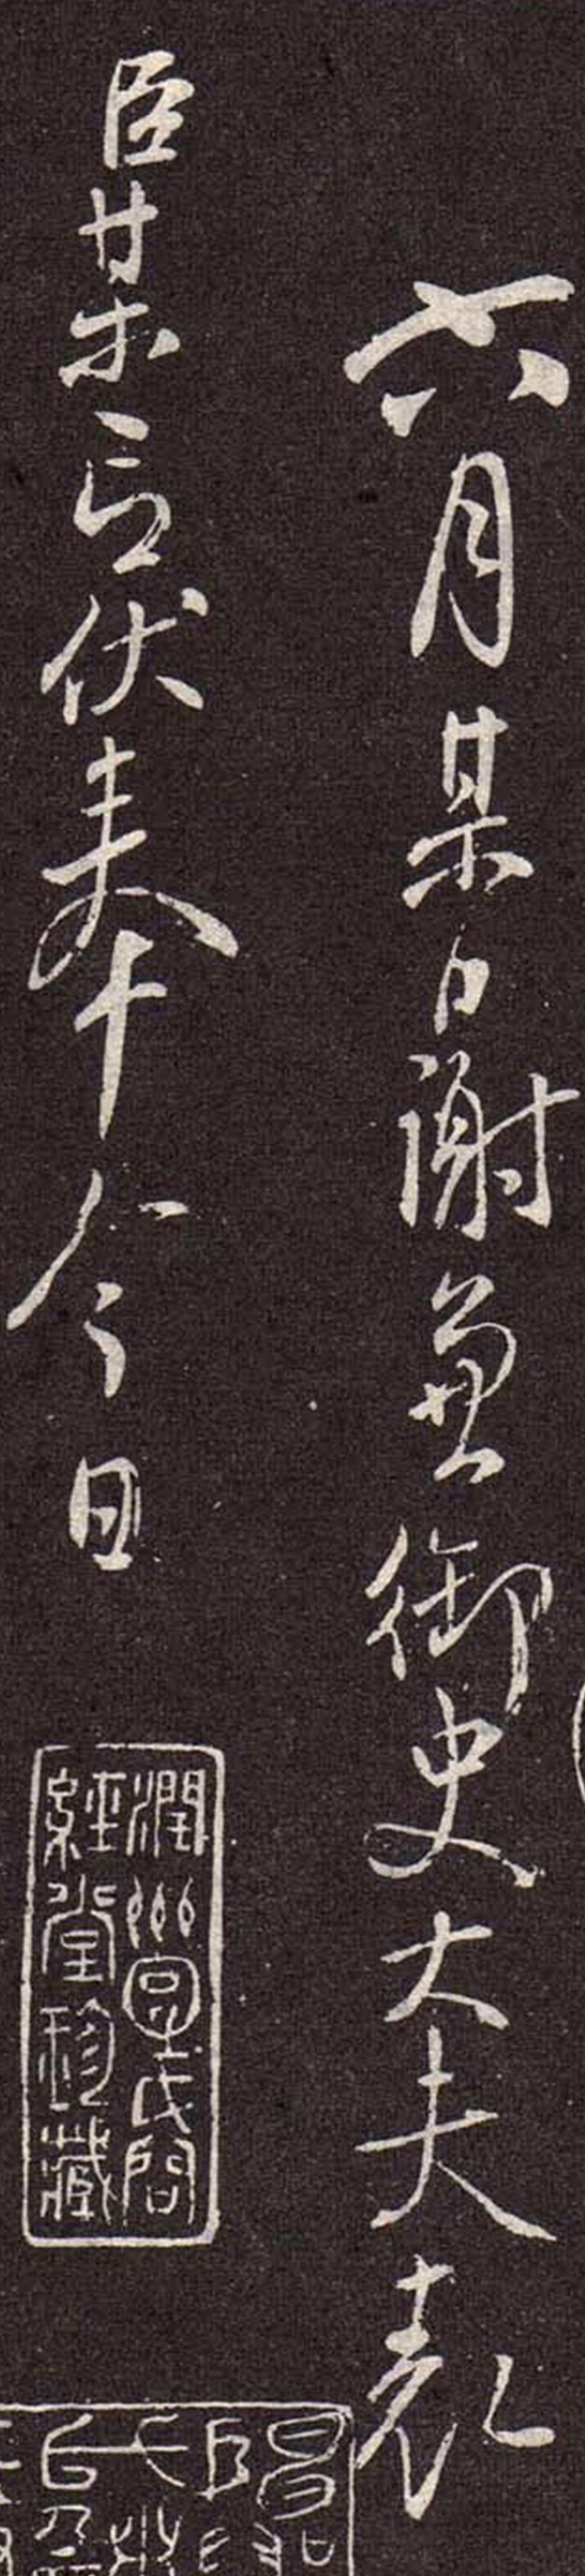 六月某日謝兼御史大夫表
臣某言伏奉今日
潤州宮氏問
經堂珍藏